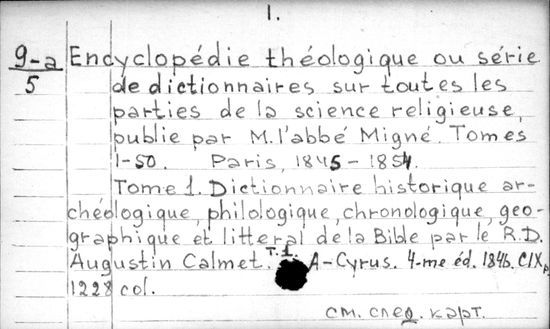 1.
9-a
5
Encyclopédie théologique ou série
de dictionnaires sur toutes les
parties de la science religieuse,
publie par M. l'abbé Migné. Tomes
1-50. Paris, 1845-1854.
Tome 1. Dictionnaire historique ar-
chéologique, philologique, chronologique, geo-
graphique et litteral de la Bible par le R.D.
Augustin Calmet. T.1. A-Cyrus. 4-me éd. 1846. CIX p.
1228 col.
см. след. карт.